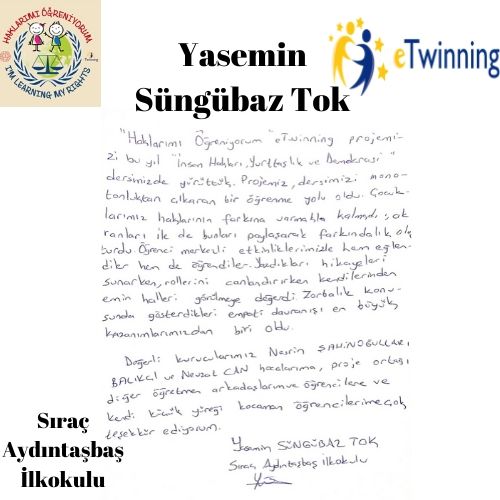 HAKLARIMI ÖĞRENİYORUM
I'M LEARNING MY RIGHTS
Yasemin
Süngübaz Tok
eTwinning
"Haklarımı Öğreniyorum" eTwinning projemi-
zi bu yıl "İnsan Hakları, Yurttaşlık ve Demokrasi"
dersimizde yürüttük. Projemiz, dersimizi mono-
tonluktan çıkaran bir öğrenme yolu oldu. Çocuk-
larımız haklarının farkına varmakla kalmadı, ak
ranları ile de bunları paylaşarak farkındalık oluş
turdu. Öğrenci merkezli etkinliklerimizle hem eğlen-
diler hem de öğrendiler. Yazdıkları hikayeleri
sunarken, rollerini canlandırırken kendilerinden
emin halleri görülmeye değerdi. Zorbalık konu-
sunda gösterdikleri empati davranışı en büyük
kazanımlarımızdan biri oldu.
Değerli kurucularımız Nesrin ŞAHİNOĞULLARI
BALIKÇI ve Nevzat CAN hocalarıma, proje ortağı
diğer öğretmen arkadaşlarıma ve öğrencilere ve
kendi küçük yüreği kocaman öğrencilerime çok
teşekkür ediyorum.
Yasemin SÜNGÜBAZ TOK
Sıraç Aydıntaşbaş İlkokulu
Sıraç
Aydıntaşbaş
İlkokulu